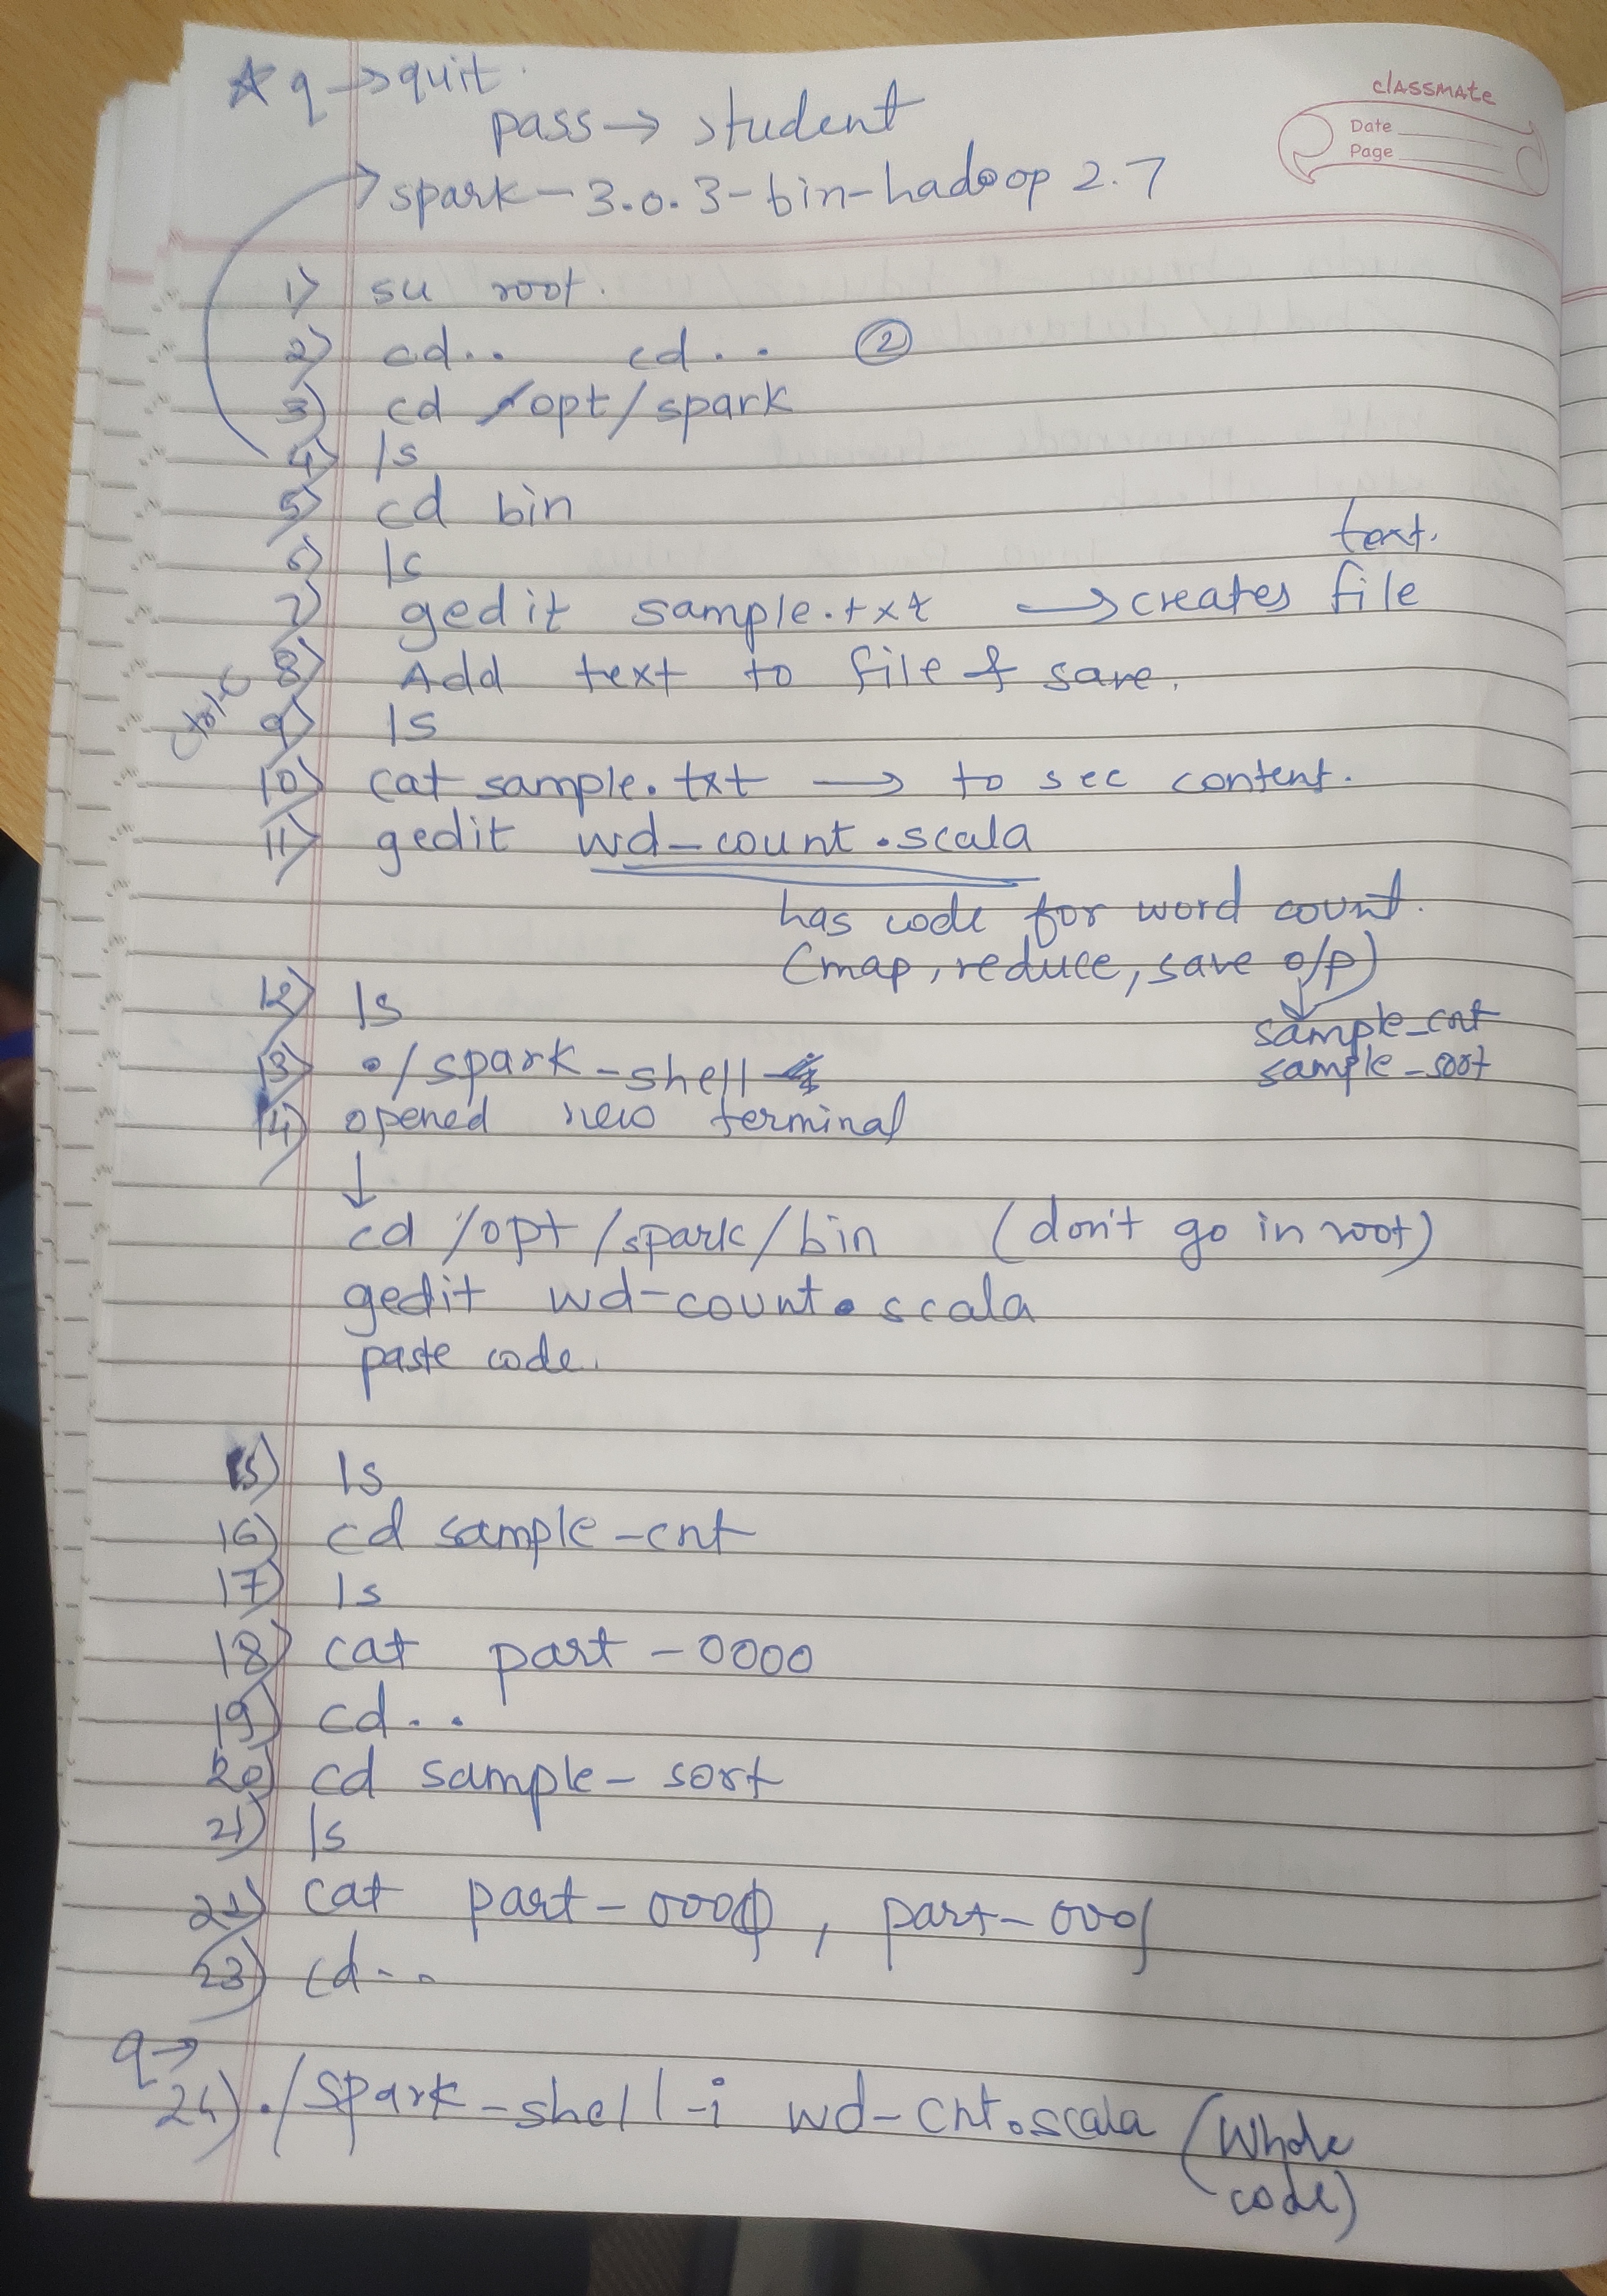 ★ q → quit.
classmate
Date
Page
pass → student
→ spark-3.0.3-bin-hadoop 2.7
1) su root.
2) cd.. cd.. ②
3) cd /opt/spark
4) ls
5) cd bin
6) ls
7) gedit sample.txt → creates text. file
8) Add text to file & save.
Ctrl-C
9) ls
10) cat sample.txt → to see content.
11) gedit wd-count.scala
has code for word count.
(map, reduce, save o/p)
12) ls
sample_cnt
sample_sort
13) ./spark-shell
14) opened new terminal
↓
cd /opt/spark/bin (don't go in root)
gedit wd-count.scala
paste code.
15) ls
16) cd sample-cnt
17) ls
18) cat part-0000
19) cd..
20) cd sample-sort
21) ls
22) cat part-0000, part-0001
23) cd..
q→
24) ./spark-shell -i wd-cnt.scala (Whole
code)